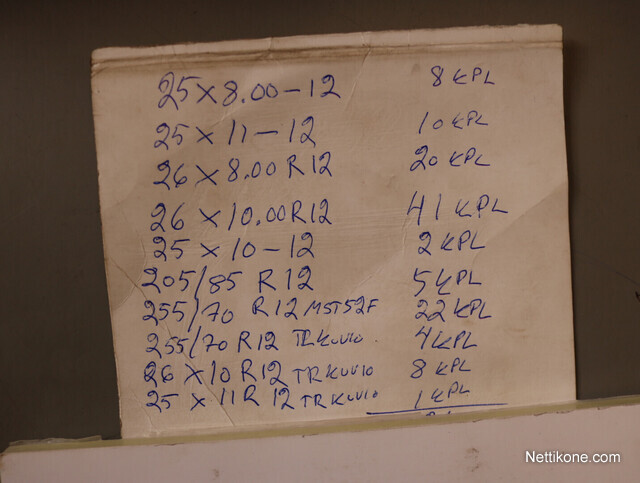 25 x 8.00 - 12 8 KPL
25 x 11 - 12 10 KPL
26 x 8.00 R12 20 KPL
26 x 10.00 R12 41 KPL
25 x 10 - 12 2 KPL
205/85 R12 5 KPL
255/70 R12 MST52F 22 KPL
255/70 R12 kuvio 4 KPL
26 x 10 R12 TR kuvio 8 KPL
25 x 11 R12 TR kuvio 1 KPL
Nettikone.com